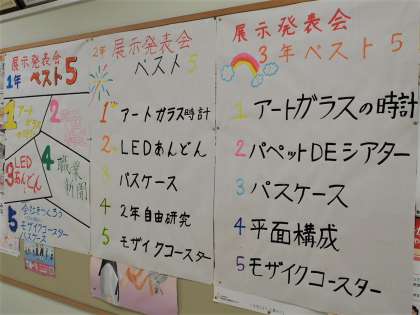 展示発表会
1年 ベスト5
1 アート
2
3 LED
あんどん
4 職業
新聞
5
モザイクコースター
パスケース
2年 展示発表会
ベスト5
1 アートガラス時計
2 LEDあんどん
3 パスケース
4 2年自由研究
5 モザイクコースター
展示発表会
3年ベスト5
1 アートガラスの時計
2 パペットDEシアター
3 パスケース
4 平面構成
5 モザイクコースター